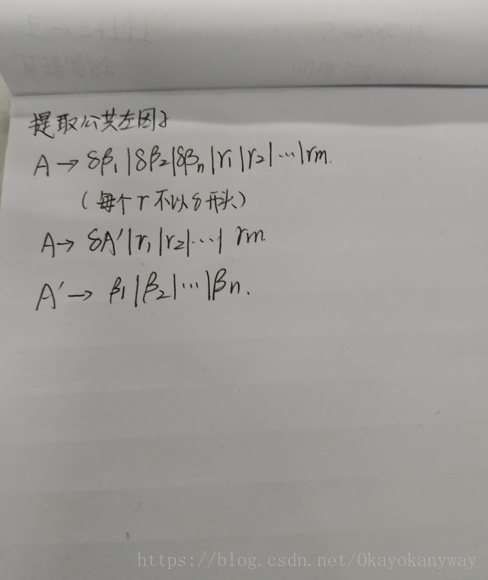 提取公共左因子
A → δβ₁|δβ₂|δβₙ|r₁|r₂|…|rm.
(每个r不以δ开头)
A → δA'|r₁|r₂|…| rm
A' → β₁|β₂|…|βn.
https://blog.csdn.net/Okayokanyway